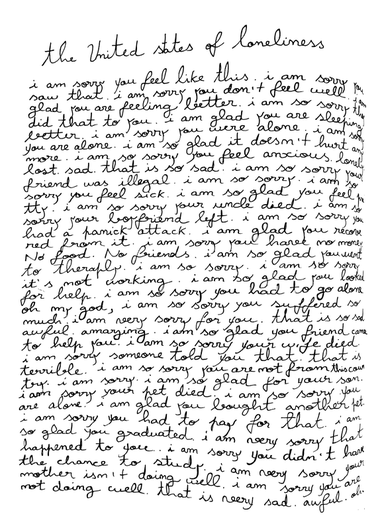 the United states of loneliness
i am sorry you feel like this. i am sorry you
saw that. i am sorry you don't feel well. i am
glad you are feeling better. i am so sorry they
did that to you. i am glad you are sleeping
better. i am sorry you were alone. i am sorry
you are alone. i am so glad it doesn't hurt any
more. i am so sorry you feel anxious. lonely
lost. sad. that is so sad. i am so sorry your
friend was illegal. i am so sorry. i am so
sorry you feel sick. i am so glad you feel pre
tty. i am so sorry your uncle died. i am so
sorry your boyfriend left. i am so sorry you
had a panick attack. i am glad you recove
red from it. i am sorry you have no money
No food. No friends. i am so glad you went
to theraply. i am so sorry. i am so sorry
it's not working. i am so glad you looked
for help. i am so sorry you had to go alone
oh my god, i am so sorry you suffered so
much. i am very sorry for you. that is so sad
awful. amazing. i am so glad you friend came
to help you. i am so sorry your wife died
i am sorry someone told you that. that is
terrible. i am so sorry you are not from this coun
try. i am sorry. i am so glad for your son.
i am sorry your pet died. i am so sorry you
are alone. i am glad you bought another pet.
i am sorry you had to pay for that. i am
so glad you graduated. i am very sorry that
happened to you. i am sorry you didn't have
the chance to study. i am very sorry your
mother isn't doing well. i am sorry you are
not doing well. that is very sad. awful. oh